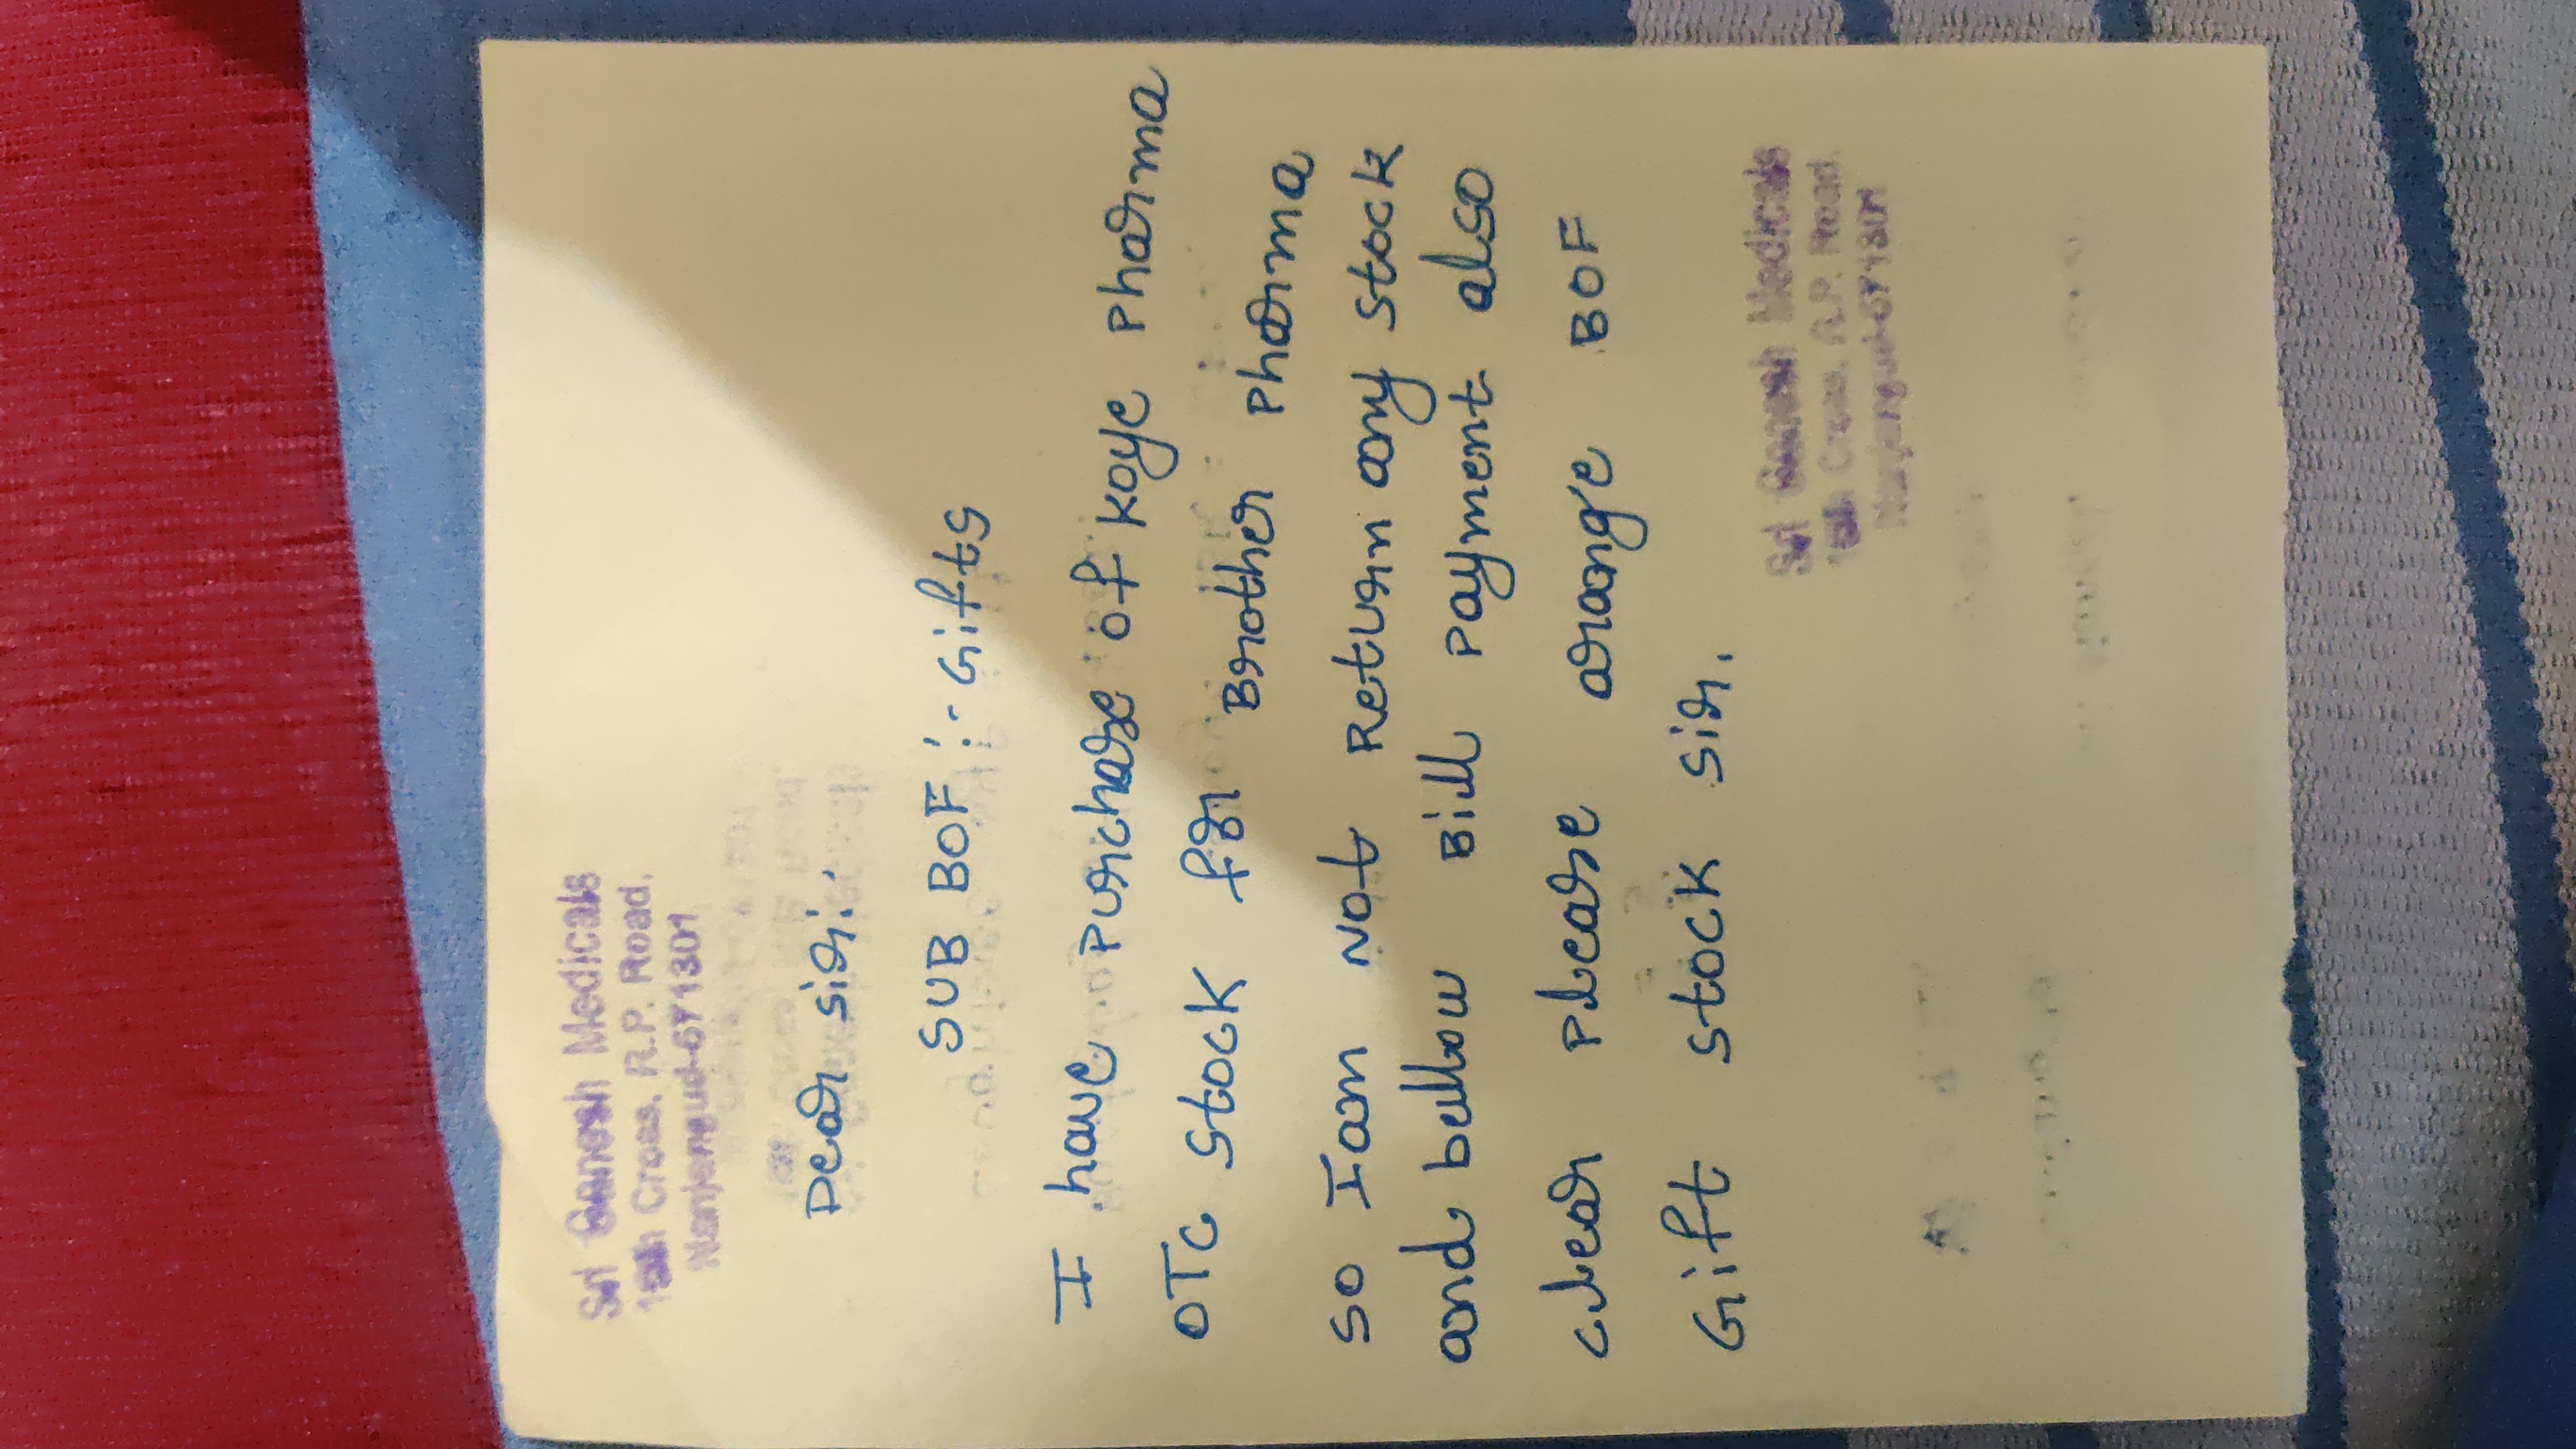 Sri Ganesh Medicals
1st Cross, R.P. Road,
Nanjangud-571301
Dear sir:
SUB BOF :- Gifts
I have purchase of Koye Pharma
OTC Stock for Brother Pharma
so I am Not Return any Stock
and bellow Bill Payment also
clear Please arange BOF
Gift Stock sir.
Sri Ganesh Medicals
1st Cross, R.P. Road,
Nanjangud-571301